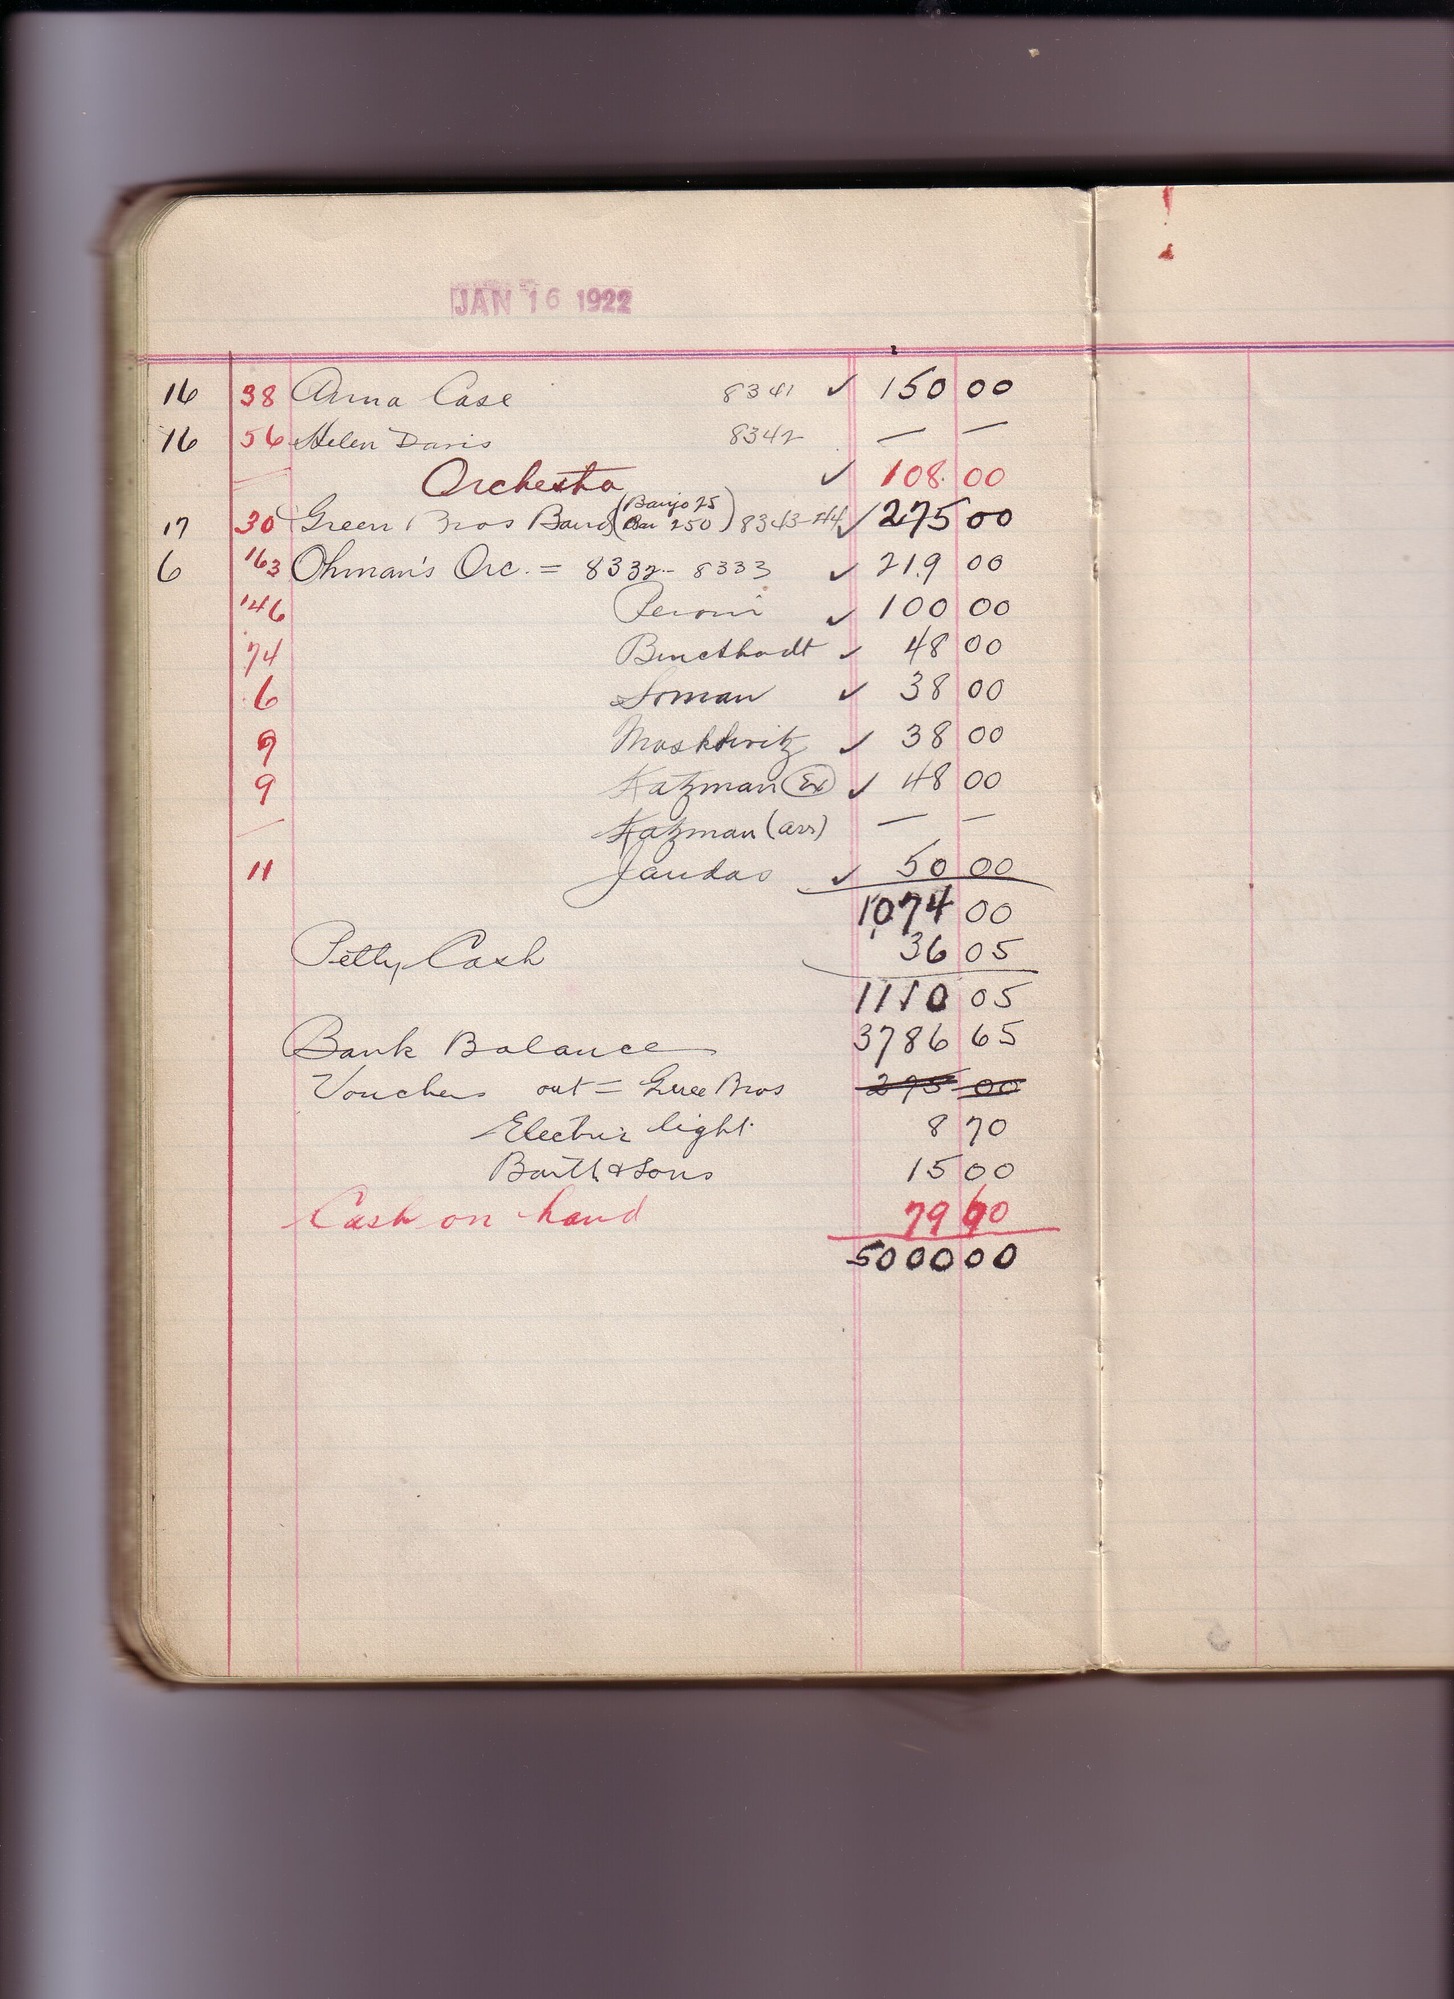 JAN 16 1922
16 38 Anna Case 8341 ✓ 150 00
16 56 Helen Davis 8342 — —
— Orchestra ✓ 108 00
17 30 Green Bros Band (Banjo 25 Bar 250) 8343-44 ✓ 275 00
6 163 Ohman's Orc. = 8332-8333 ✓ 219 00
146 Peroni ✓ 100 00
74 ✓ 48 00
6 Soman ✓ 38 00
9 ✓ 38 00
9 Katzman (Ex) ✓ 48 00
— Katzman (arr) — —
11 Jaudas ✓ 50 00
1074 00
Petty Cash 36 05
1110 05
Bank Balance 3786 65
Vouchers out = Green Bros 275 00
Electric light 8 70
Barth & Sons 15 00
Cash on hand 79 60
5000 00